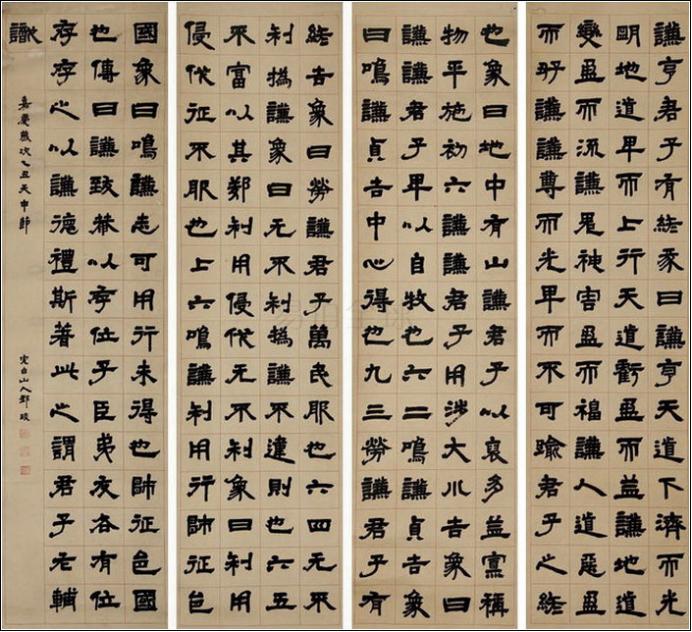 謙亨君子有終彖曰謙亨天道下濟而光
明地道卑而上行天道虧盈而益謙地道
變盈而流謙鬼神害盈而福謙人道惡盈
而好謙謙尊而光卑而不可踰君子之終
也象曰地中有山謙君子以裒多益寡稱
物平施初六謙謙君子用涉大川吉象曰
謙謙君子卑以自牧也六二鳴謙貞吉象
曰鳴謙貞吉中心得也九三勞謙君子有
終吉象曰勞謙君子萬民服也六四无不
利撝謙象曰无不利撝謙不違則也六五
不富以其鄰利用侵伐无不利象曰利用
侵伐征不服也上六鳴謙利用行師征邑
國象曰鳴謙志可用行未得也師征邑國
也傳曰謙致恭以存位乎臣弟友各有位
存存之以謙德禮斯著此之謂君子輔
識
嘉慶歲次乙丑天申節
完白山人鄧琰